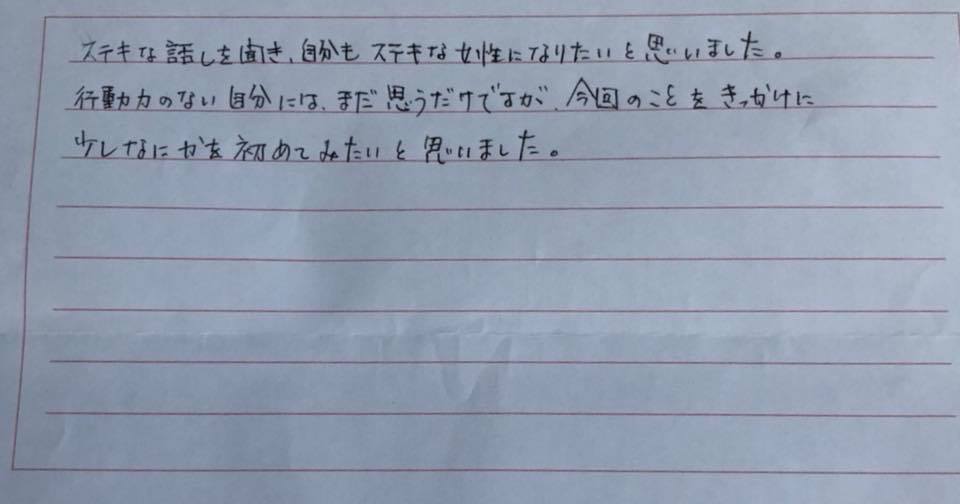 ステキな話しを聞き、自分もステキな女性になりたいと思いました。
行動力のない自分には、まだ思うだけですが、今回のことをきっかけに
少しなにかを初めてみたいと思いました。